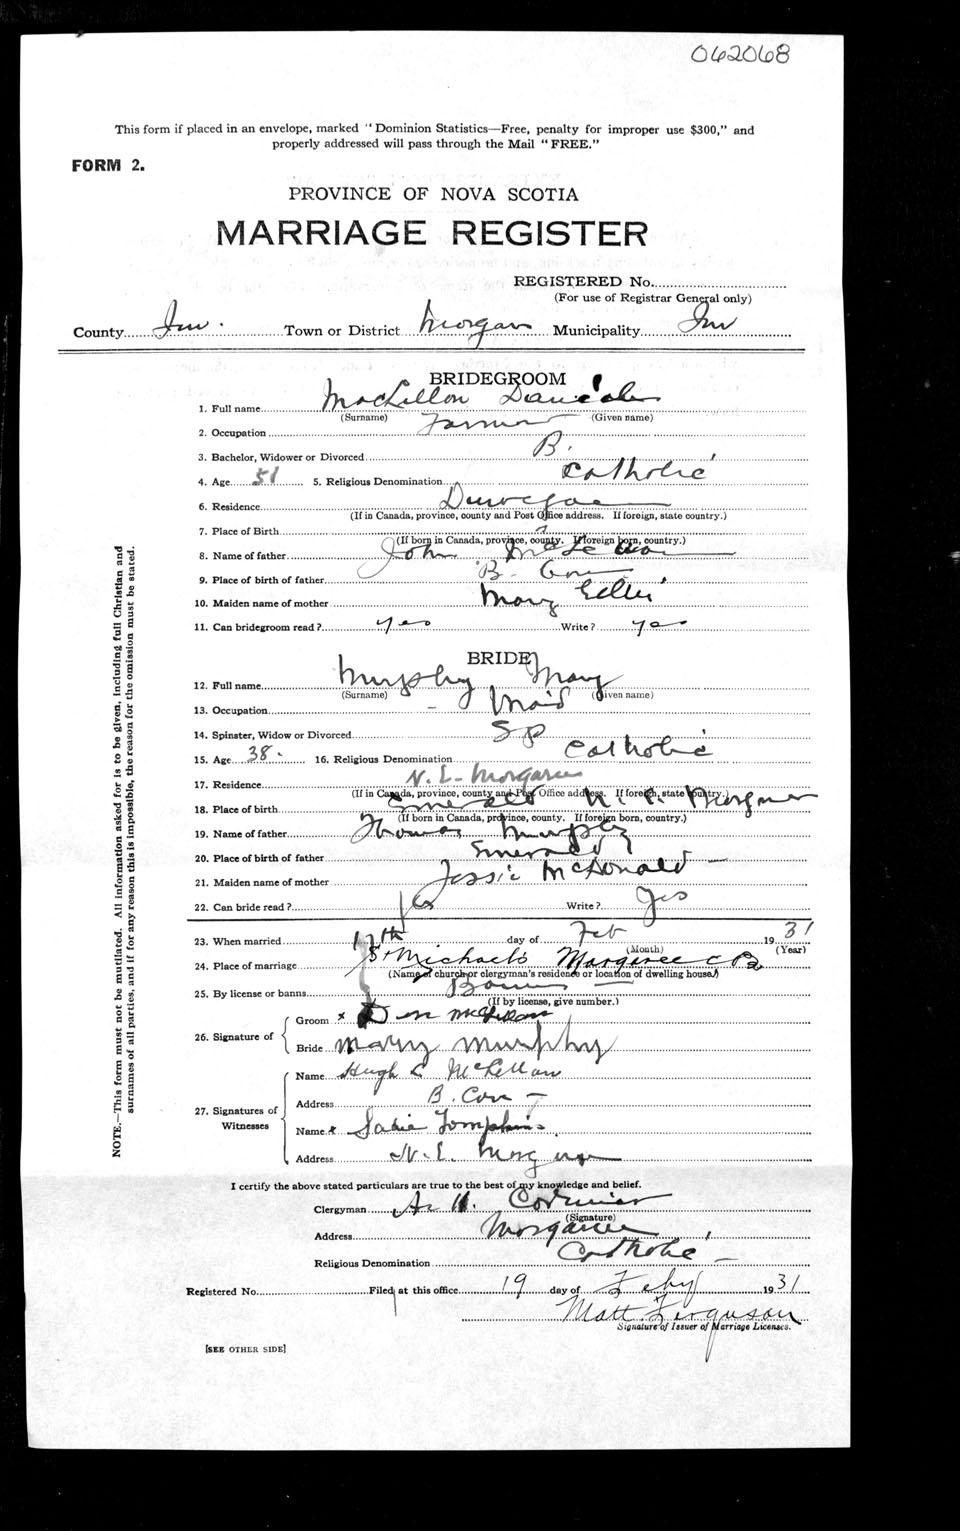 062068
This form if placed in an envelope, marked "Dominion Statistics—Free, penalty for improper use $300," and
properly addressed will pass through the Mail "FREE."
FORM 2.
PROVINCE OF NOVA SCOTIA
MARRIAGE REGISTER
REGISTERED No.
(For use of Registrar General only)
County Inv. Town or District Margaree Municipality Inv
BRIDEGROOM
1. Full name MacLellan Daniel
(Surname) (Given name)
2. Occupation Farmer
3. Bachelor, Widower or Divorced B.
4. Age 51 5. Religious Denomination Catholic
6. Residence Dunvegan
(If in Canada, province, county and Post Office address. If foreign, state country.)
7. Place of Birth
(If born in Canada, province, county. If foreign born, country.)
8. Name of father John McLellan
9. Place of birth of father B. Cove
10. Maiden name of mother Mary Gillis
11. Can bridegroom read? yes Write? yes
BRIDE
12. Full name Murphy Mary
(Surname) (Given name)
13. Occupation Maid
14. Spinster, Widow or Divorced Sp
15. Age 38. 16. Religious Denomination Catholic
17. Residence N. E. Margaree
(If in Canada, province, county and Post Office address. If foreign, state country.)
18. Place of birth Emerald N. E. Margaree
(If born in Canada, province, county. If foreign born, country.)
19. Name of father Thomas Murphy
20. Place of birth of father Emerald
21. Maiden name of mother Jessie McDonald
22. Can bride read? Yes Write? Yes
23. When married 17th day of Feb 1931
(Month) (Year)
24. Place of marriage St Michael's Margaree C B
(Name of church or clergyman's residence or location of dwelling house)
25. By license or banns Banns
(If by license, give number.)
26. Signature of
Groom x Dan McLellan
Bride Mary Murphy
27. Signatures of Witnesses
Name Hugh C McLellan
Address B. Cove
Name x Sadie Tompkins
Address N. E. Margaree
I certify the above stated particulars are true to the best of my knowledge and belief.
Clergyman Cormier
(Signature)
Address Margaree
Religious Denomination Catholic
Registered No. Filed at this office 19 day of Feby 1931
Matt Ferguson
Signature of Issuer of Marriage Licenses.
[SEE OTHER SIDE]
NOTE.—This form must not be mutilated. All information asked for is to be given, including full Christian and
surnames of all parties, and if for any reason this is impossible, the reason for the omission must be stated.